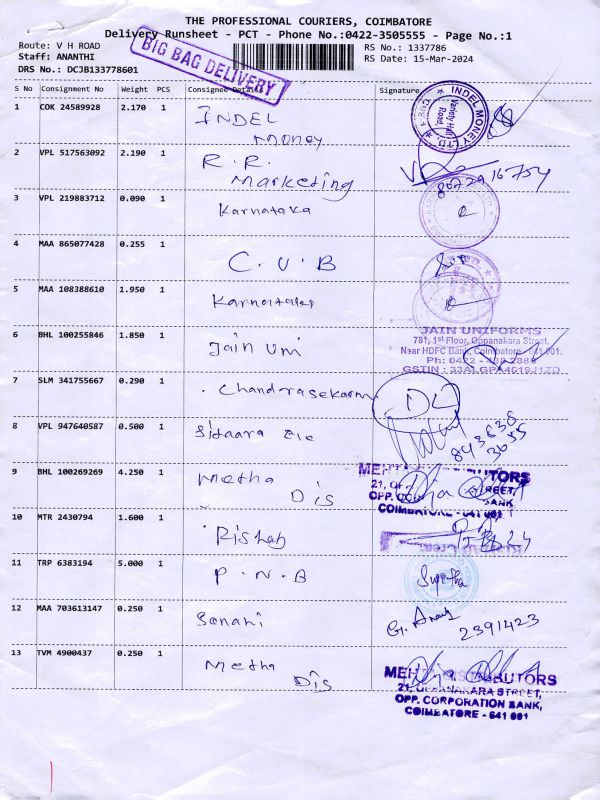 THE PROFESSIONAL COURIERS, COIMBATORE
Delivery Runsheet - PCT - Phone No.:0422-3505555 - Page No.:1
Route: V H ROAD
RS No.: 1337786
Staff: ANANTHI
RS Date: 15-Mar-2024
DRS No.: DCJB133778601
BIG BAG DELIVERY
S No Consignment No Weight PCS Consignee Details Signature
1 COK 24589928 2.170 1 INDEL
Money
INDEL MONEY LTD.
Variety Hall
Road,
2 VPL 517563092 2.190 1 R.R.
Marketing
3 VPL 219883712 0.090 1 Karnataka
4 MAA 865077428 0.255 1 C.U.B
5 MAA 108388610 1.950 1
6 BHL 100255846 1.850 1 Jain Uni
JAIN UNIFORMS
781, 1st Floor, Oppanakara Street,
Near HDFC Bank, Coimbatore - 641 001.
7 SLM 341755667 0.290 1
8 VPL 947640587 0.500 1
843638
3655
9 BHL 100269269 4.250 1 Metha
Dis
OPP. BANK
COIMBATORE - 641 001
10 MTR 2430794 1.600 1
11 TRP 6383194 5.000 1 P.N.B
12 MAA 703613147 0.250 1
2391423
13 TVM 4900437 0.250 1 Metha
Dis
STREET,
OPP. CORPORATION BANK,
COIMBATORE - 641 001